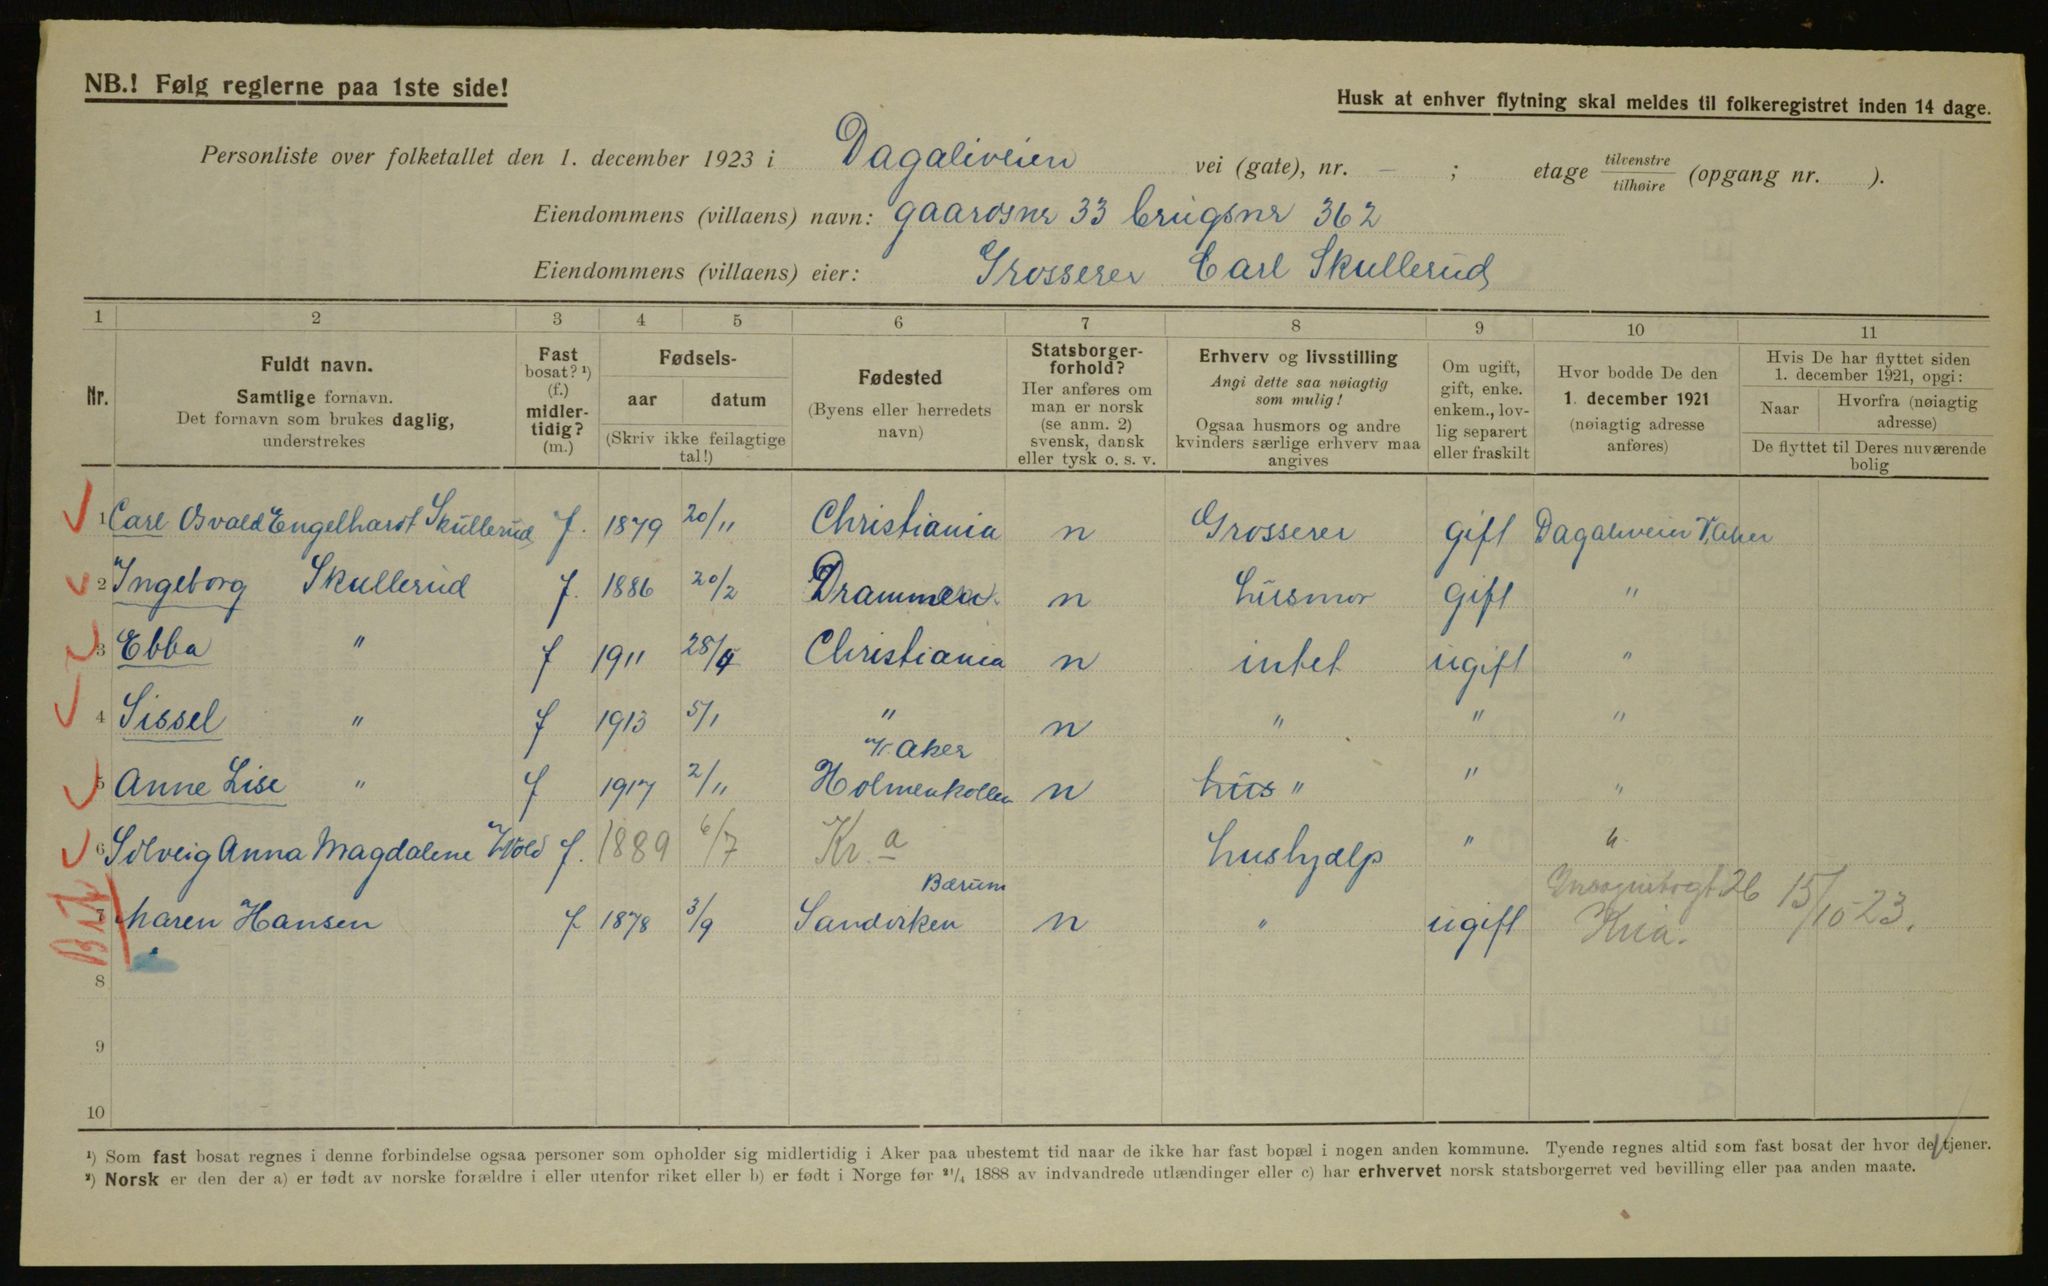 NB.! Følg reglerne paa 1ste side!
Husk at enhver flytning skal meldes til folkeregistret inden 14 dage.
Personliste over folketallet den 1. december 1923 i Dagaliveien vei (gate), nr. – ; etage tilvenstre/tilhøire (opgang nr. ).
Eiendommens (villaens) navn: gaardsnr 33 brugsnr 362
Eiendommens (villaens) eier: Grosserer Carl Skullerud
1 2 3 4 5 6 7 8 9 10 11
Nr.
Fuldt navn.
Samtlige fornavn.
Det fornavn som brukes daglig,
understrekes
Fast
bosat? ¹)
(f.)
midler-
tidig?
(m.)
Fødsels-
aar datum
(Skriv ikke feilagtige
tal!)
Fødested
(Byens eller herredets
navn)
Statsborger-
forhold?
Her anføres om
man er norsk
(se anm. 2)
svensk, dansk
eller tysk o. s. v.
Erhverv og livsstilling
Angi dette saa nøiagtig
som mulig!
Ogsaa husmors og andre
kvinders særlige erhverv maa
angives
Om ugift,
gift, enke.
enkem., lov-
lig separert
eller fraskilt
Hvor bodde De den
1. december 1921
(nøiagtig adresse
anføres)
Hvis De har flyttet siden
1. december 1921, opgi:
Naar
Hvorfra (nøiagtig
adresse)
De flyttet til Deres nuværende
bolig
1 Carl Osvald Engelhardt Skullerud f. 1879 20/11 Christiania n Grosserer gift Dagaliveien V. Aker
2 Ingeborg Skullerud f. 1886 20/2 Drammen n husmor gift "
3 Ebba " f 1911 28/4 Christiania n intet ugift "
4 Sissel " f 1913 5/1 " n " " "
V. Aker
5 Anne Lise " f 1917 2/11 Holmenkollen n hus " " "
6 Solveig Anna Magdalene Wold f. 1889 6/7 Kr.a hushjælp " "
Bærum
7 Maren Hansen f 1878 3/9 Sandviken n " ugift 26 Kria. 15/10-23.
8
9
10
¹) Som fast bosat regnes i denne forbindelse ogsaa personer som opholder sig midlertidig i Aker paa ubestemt tid naar de ikke har fast bopæl i nogen anden kommune. Tyende regnes altid som fast bosat der hvor de tjener.
²) Norsk er den der a) er født av norske forældre i eller utenfor riket eller b) er født i Norge før 21/4 1888 av indvandrede utlændinger eller c) har erhvervet norsk statsborgerret ved bevilling eller paa anden maate.